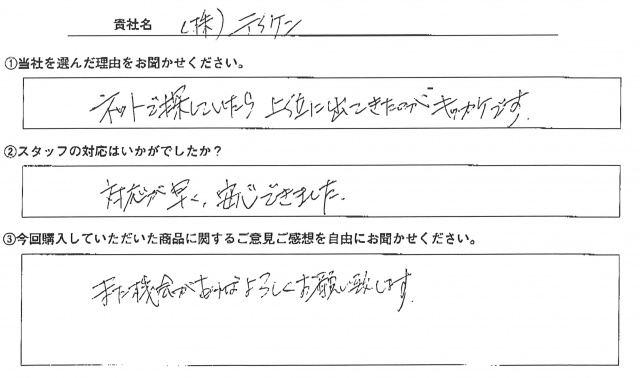 貴社名 (株)テイケン
①当社を選んだ理由をお聞かせください。
ネットで探していたら上位に出てきたのがキッカケです。
②スタッフの対応はいかがでしたか?
対応が早く、安心できました。
③今回購入していただいた商品に関するご意見ご感想を自由にお聞かせください。
また機会があればよろしくお願い致します。